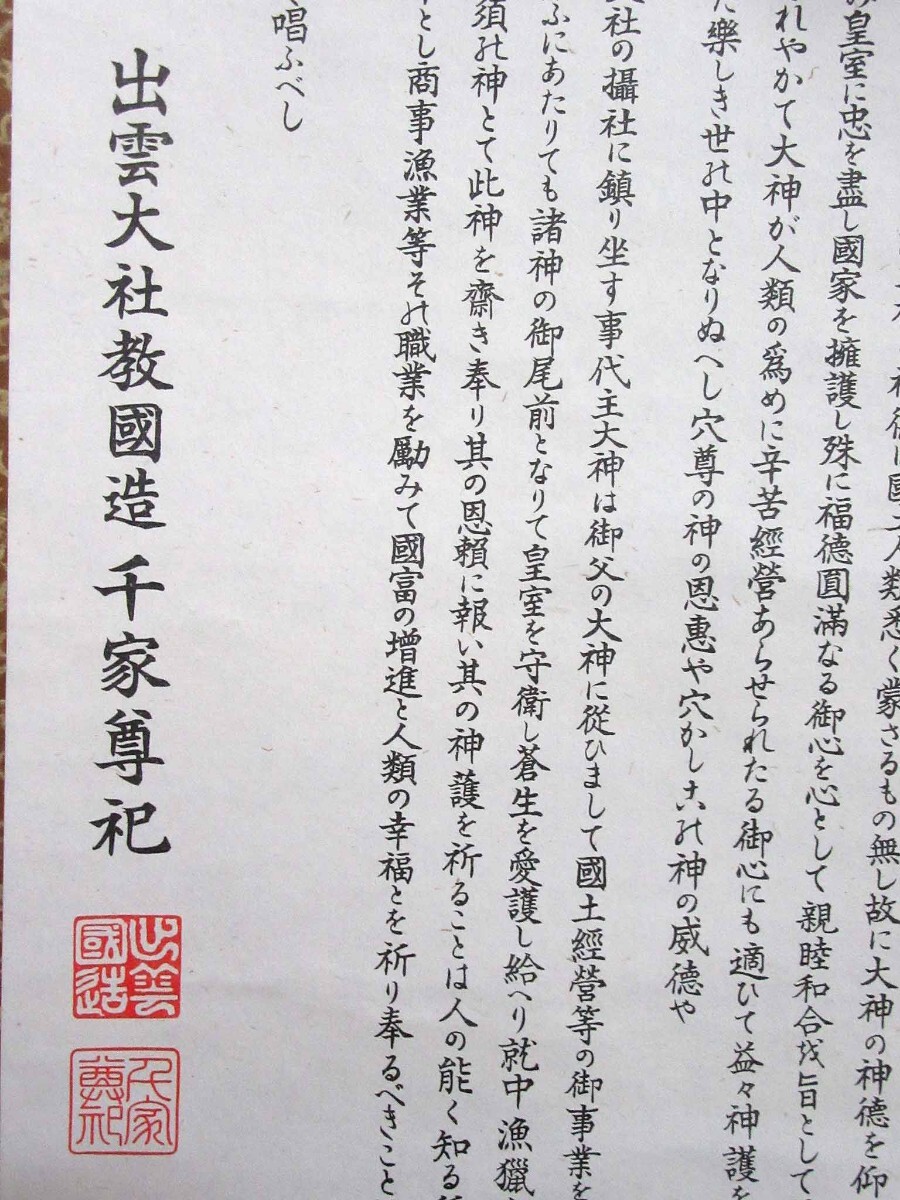 神德は國土人類悉く蒙さるもの無し故に大神の神德を仰
皇室に忠を盡し國家を擁護し殊に福德圓滿なる御心を心として親睦和合を旨として
れやかて大神が人類の爲めに辛苦經營あらせられたる御心にも適ひて益々神護を
た樂しき世の中となりぬへし穴尊の神の恩惠や穴かしこの神の威德や
社の攝社に鎮り坐す事代主大神は御父の大神に從ひまして國土經營等の御事業を
ふにあたりても諸神の御尾前となりて皇室を守衛し蒼生を愛護し給へり就中漁獵
須の神とて此神を齋き奉り其の恩賴に報い其の神護を祈ることは人の能く知る
とし商事漁業等その職業を勵みて國富の增進と人類の幸福とを祈り奉るべきこと
唱ふべし
出雲大社教國造 千家尊祀
出雲國造
千家尊祀